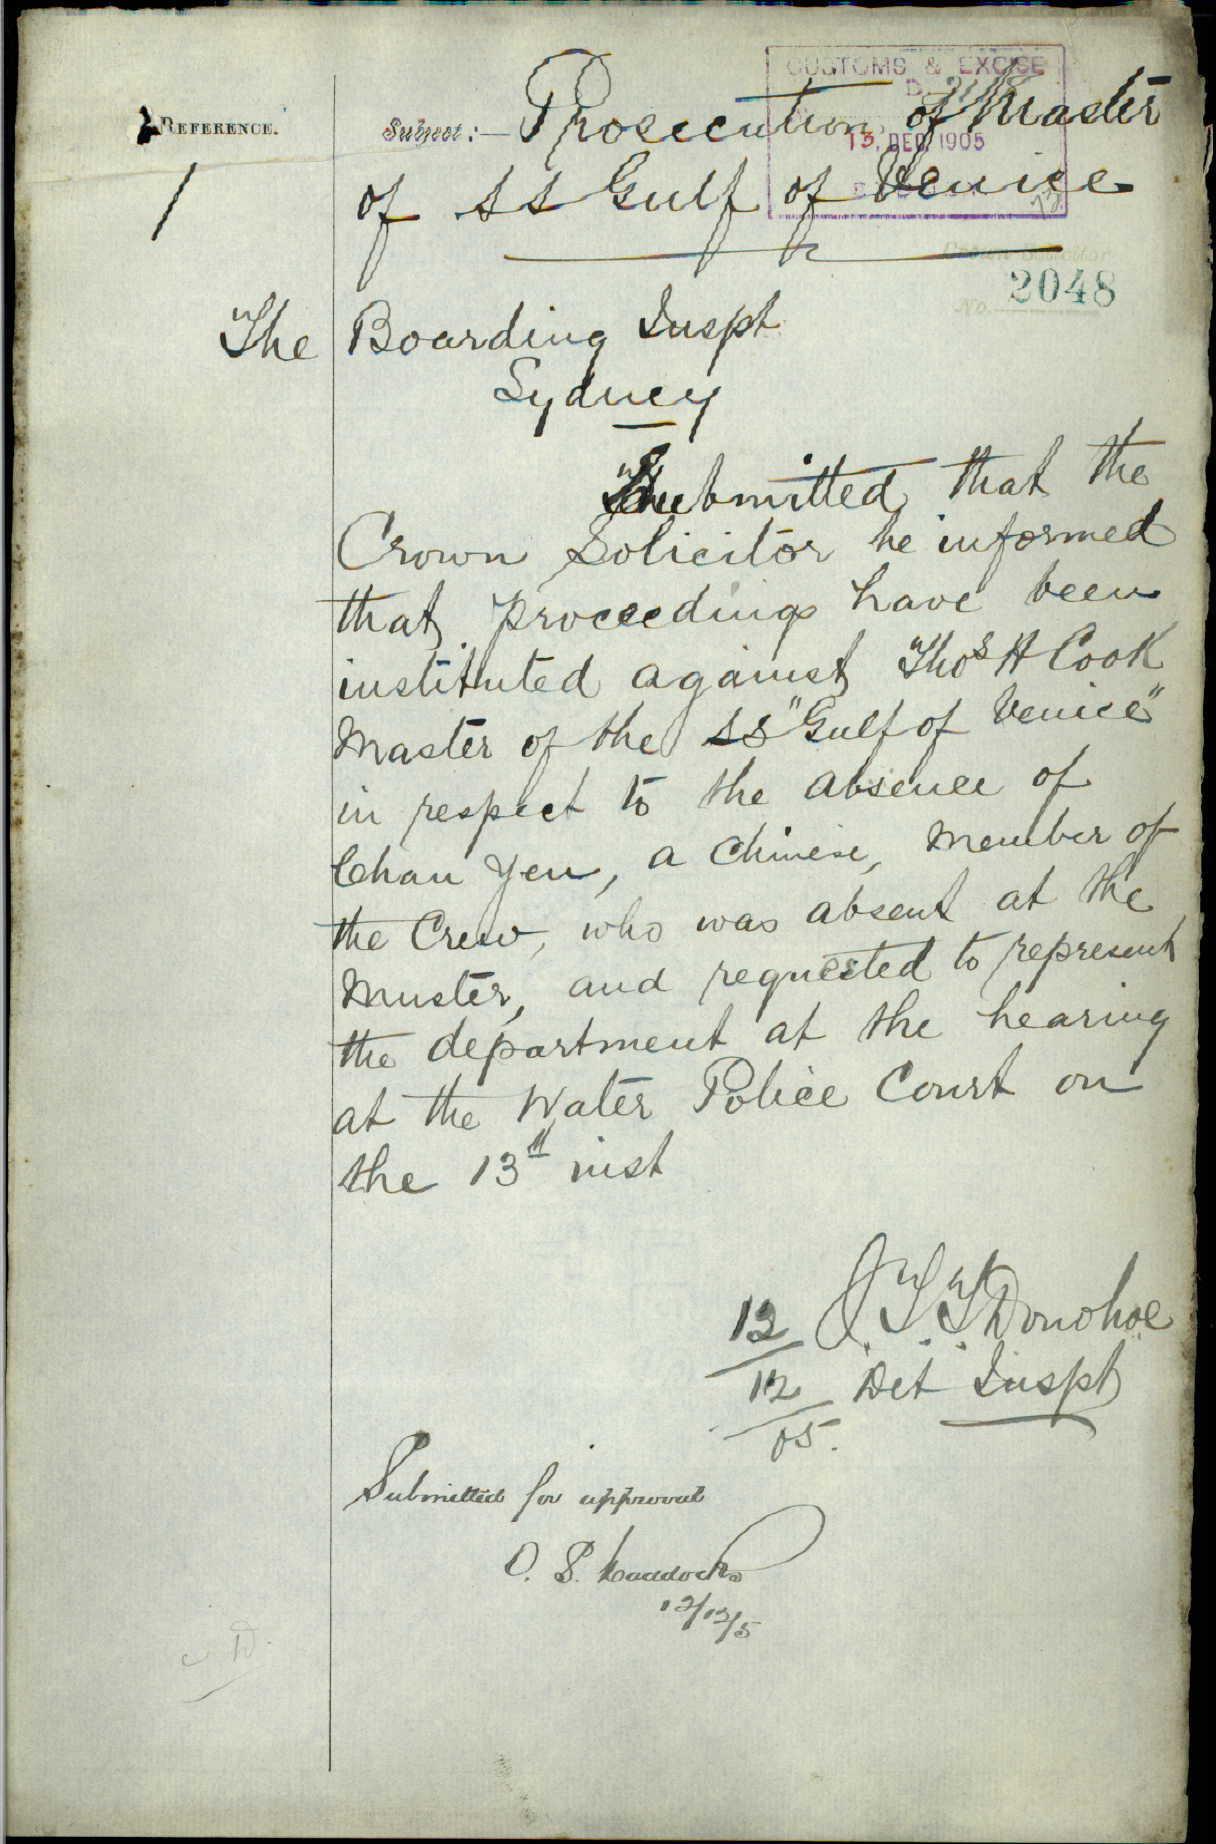 REFERENCE.
Subject:— Prosecution of Master
of SS Gulf of Venice
CUSTOMS & EXCISE
13. DEC. 1905
1
Crown Solicitor
No. 2048
The Boarding Inspt
Sydney
Submitted that the
Crown Solicitor be informed
that proceedings have been
instituted against Thos H Cook
Master of the SS "Gulf of Venice"
in respect to the absence of
Chan Yen, a Chinese, Member of
the Crew, who was absent at the
Muster, and requested to represent
the department at the hearing
at the Water Police Court on
the 13th inst
J. T. T. Donohoe
Det Inspt
12/12/05.
Submitted for approval
O. S. Maddocks
12/12/5